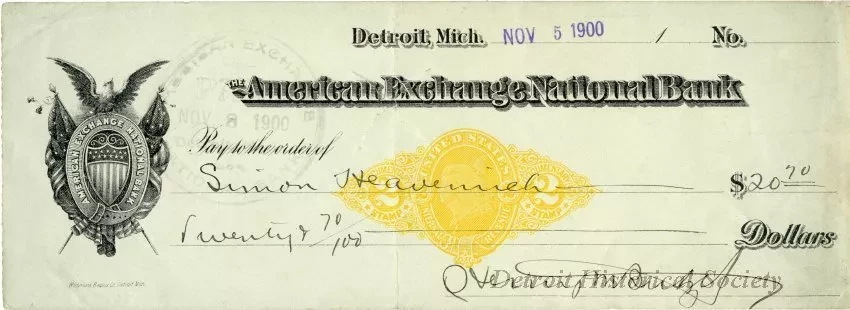 Detroit, Mich. NOV 5 1900 1 No.
THE American Exchange National Bank
AMERICAN EXCHANGE NATIONAL BANK
NOV 8 1900
Pay to the order of
Simon Heavenrich $20.70
UNITED STATES
2 2
STAMP STAMP
Twenty & 70/100 Dollars
Detroit Historical Society